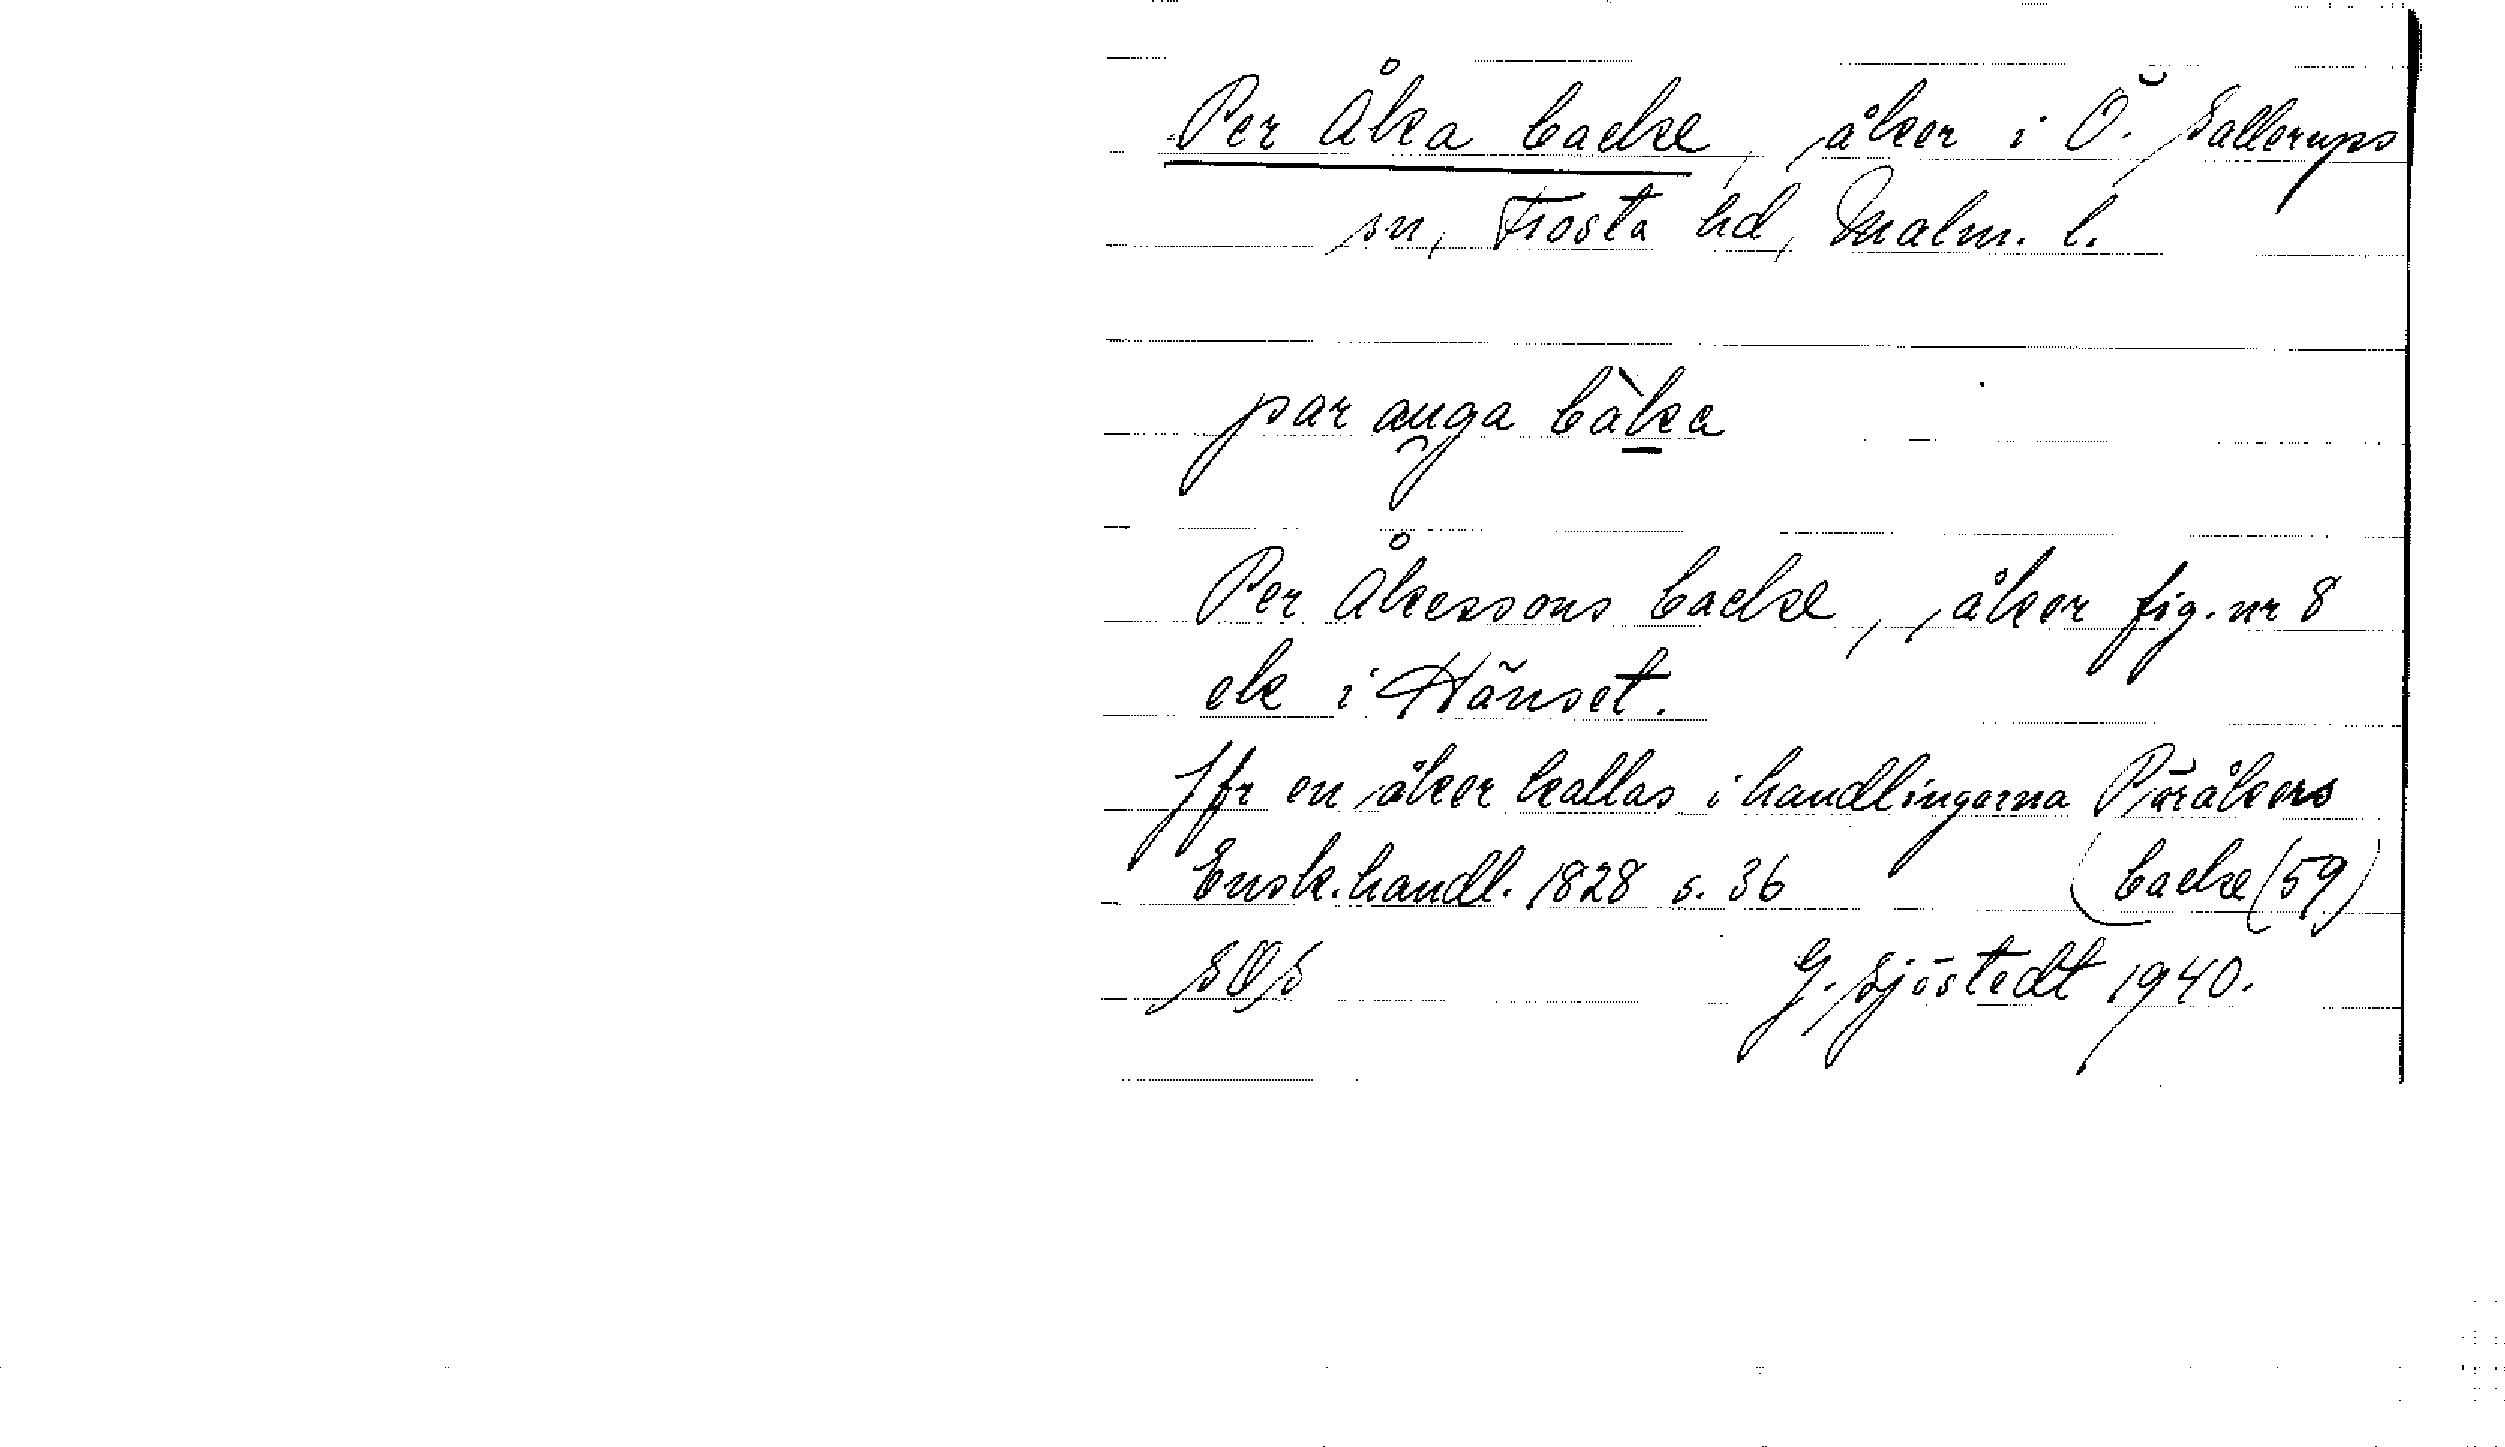 Per Åka backe, åker i Ö. Sallerups
sn, Frosta hd, Malm. l.
par auga bàka
Per Åkessons backe, åker fig. nr 8
ek i Hänset.
Jfr en åker kallas i handlingarna Pöråkers
backe (59)
Ensk. handl. 1828 s. 36
SOS
G. Sjöstedt 1940.